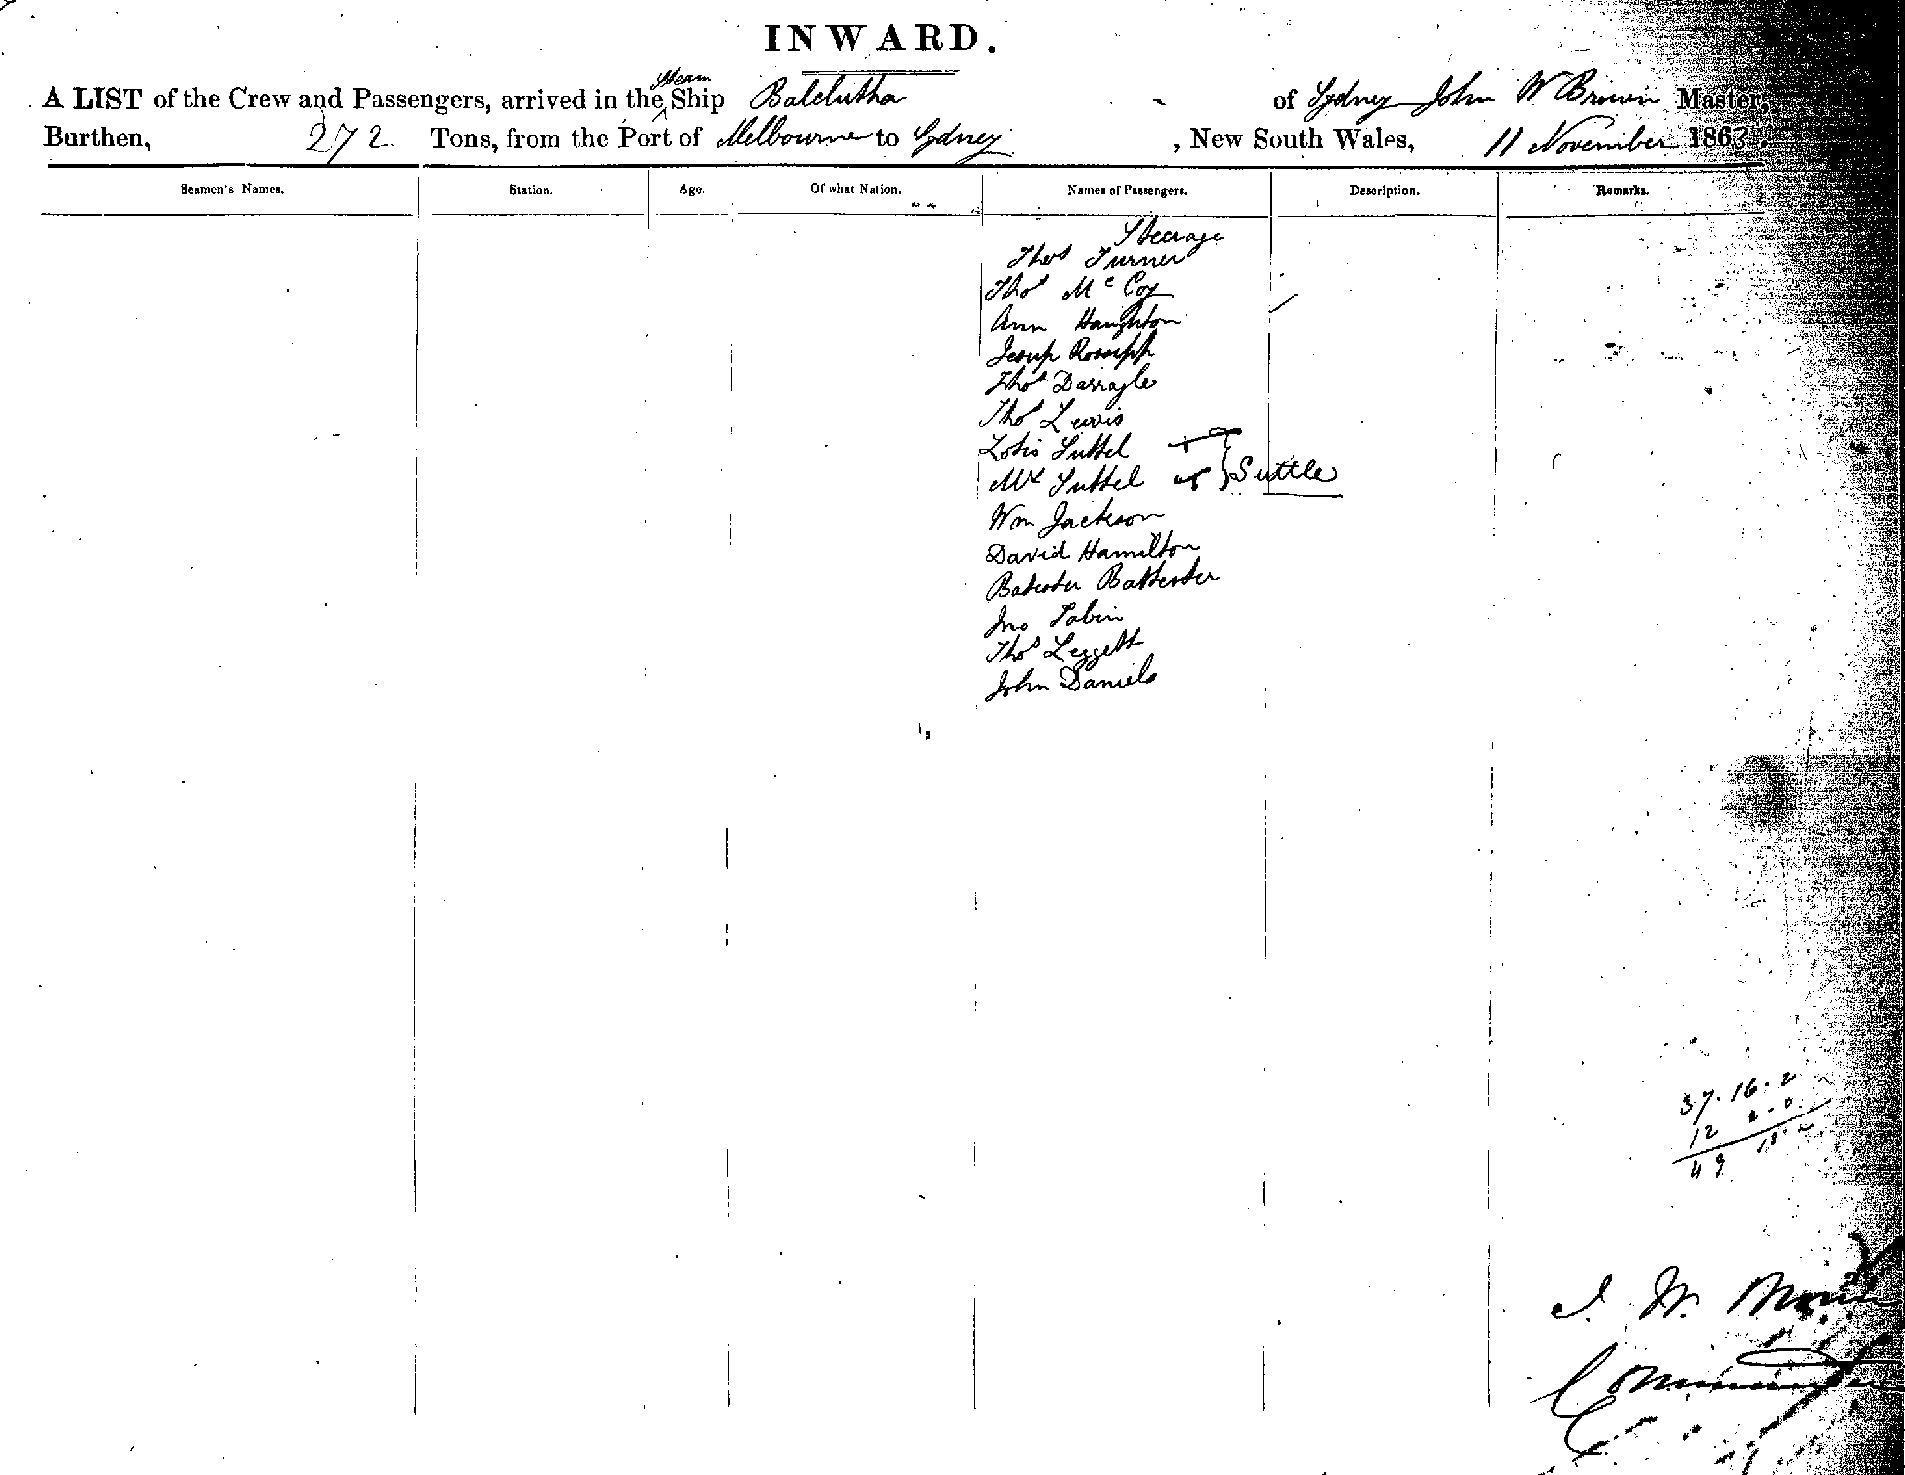 INWARD.
Steam
A LIST of the Crew and Passengers, arrived in the Ship Balclutha of Sydney John W Brown Master,
Burthen, 272 Tons, from the Port of Melbourne to Sydney, New South Wales, 11 November 1863.
Seamen's Names. Station. Age. Of what Nation. Names of Passengers. Description. Remarks.
Steerage
Thos Turner
Thos McCoy
Ann Haughton
Thos Darragle
Thos Lewis
Suttel
Suttel } Suttle
Wm Jackson
David Hamilton
Battester
Jno Tobin
Thos Leggett
John Daniels
37.16.2
12
49
J. W. Brown